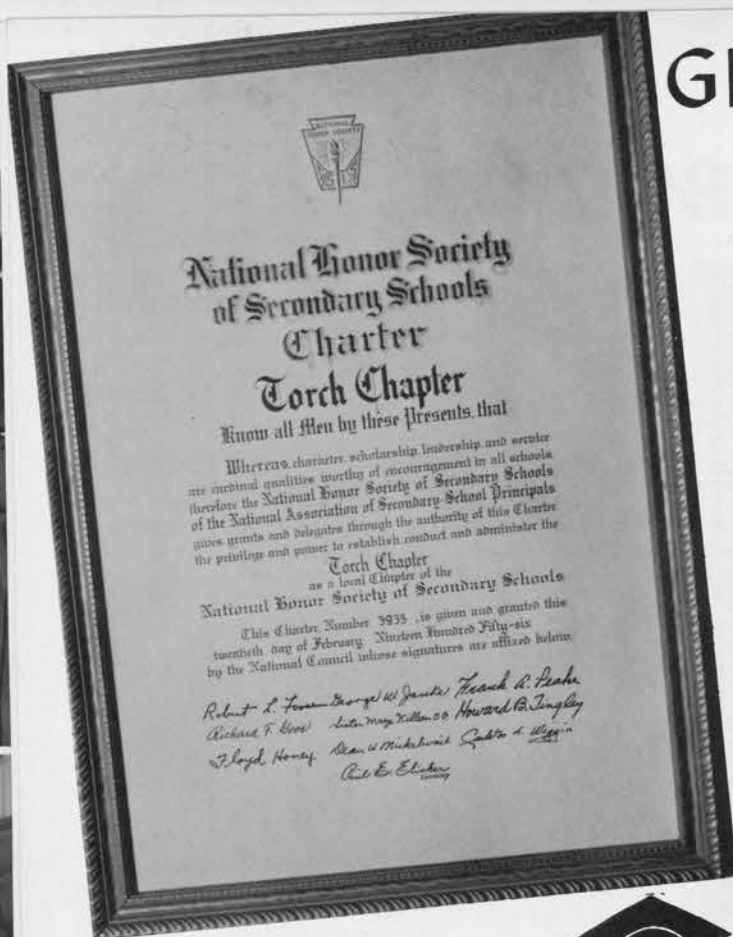 GI
NATIONAL
HONOR SOCIETY
National Honor Society
of Secondary Schools
Charter
Torch Chapter
Know all Men by these Presents, that
Whereas, character, scholarship, leadership, and service
are medinal qualities worthy of encouragement in all schools
therefore the National Honor Society of Secondary Schools
of the National Association of Secondary-School Principals
gives grants and delegates through the authority of this Charter
the privilege and power to establish conduct and administer the
Torch Chapter
as a local Chapter of the
National Honor Society of Secondary Schools
This Charter, Number 5935, is given and granted this
twentieth day of February Nineteen Hundred Fifty-six
by the National Council whose signatures are affixed below.
Robert L. Foose George W Janke Frank A. Peake
Richard T. Goos Sister Mary Howard B. Tingley
Floyd Honey Dean W Mickelwait L. Wiggin
Paul E. Elicker